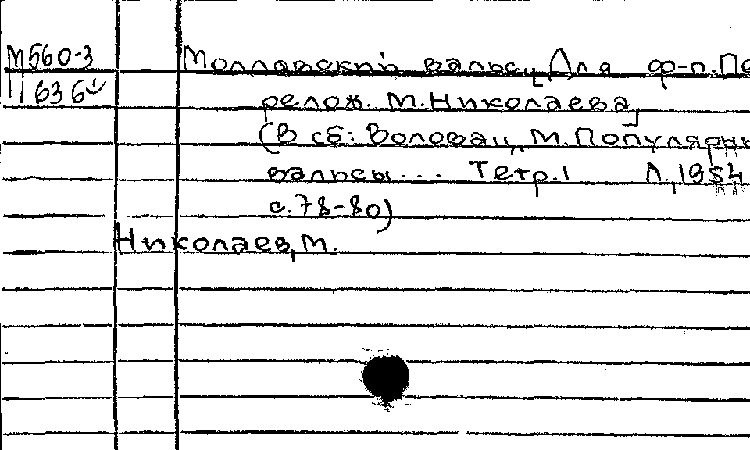 М560-3
11636
Молдавский вальс [Для ф-п. Пе
релож. М. Николаева]
(В сб.: Воловац, М. Популярны
вальсы... Тетр.1 Л., 1954
с.78-80)
Николаев, М.